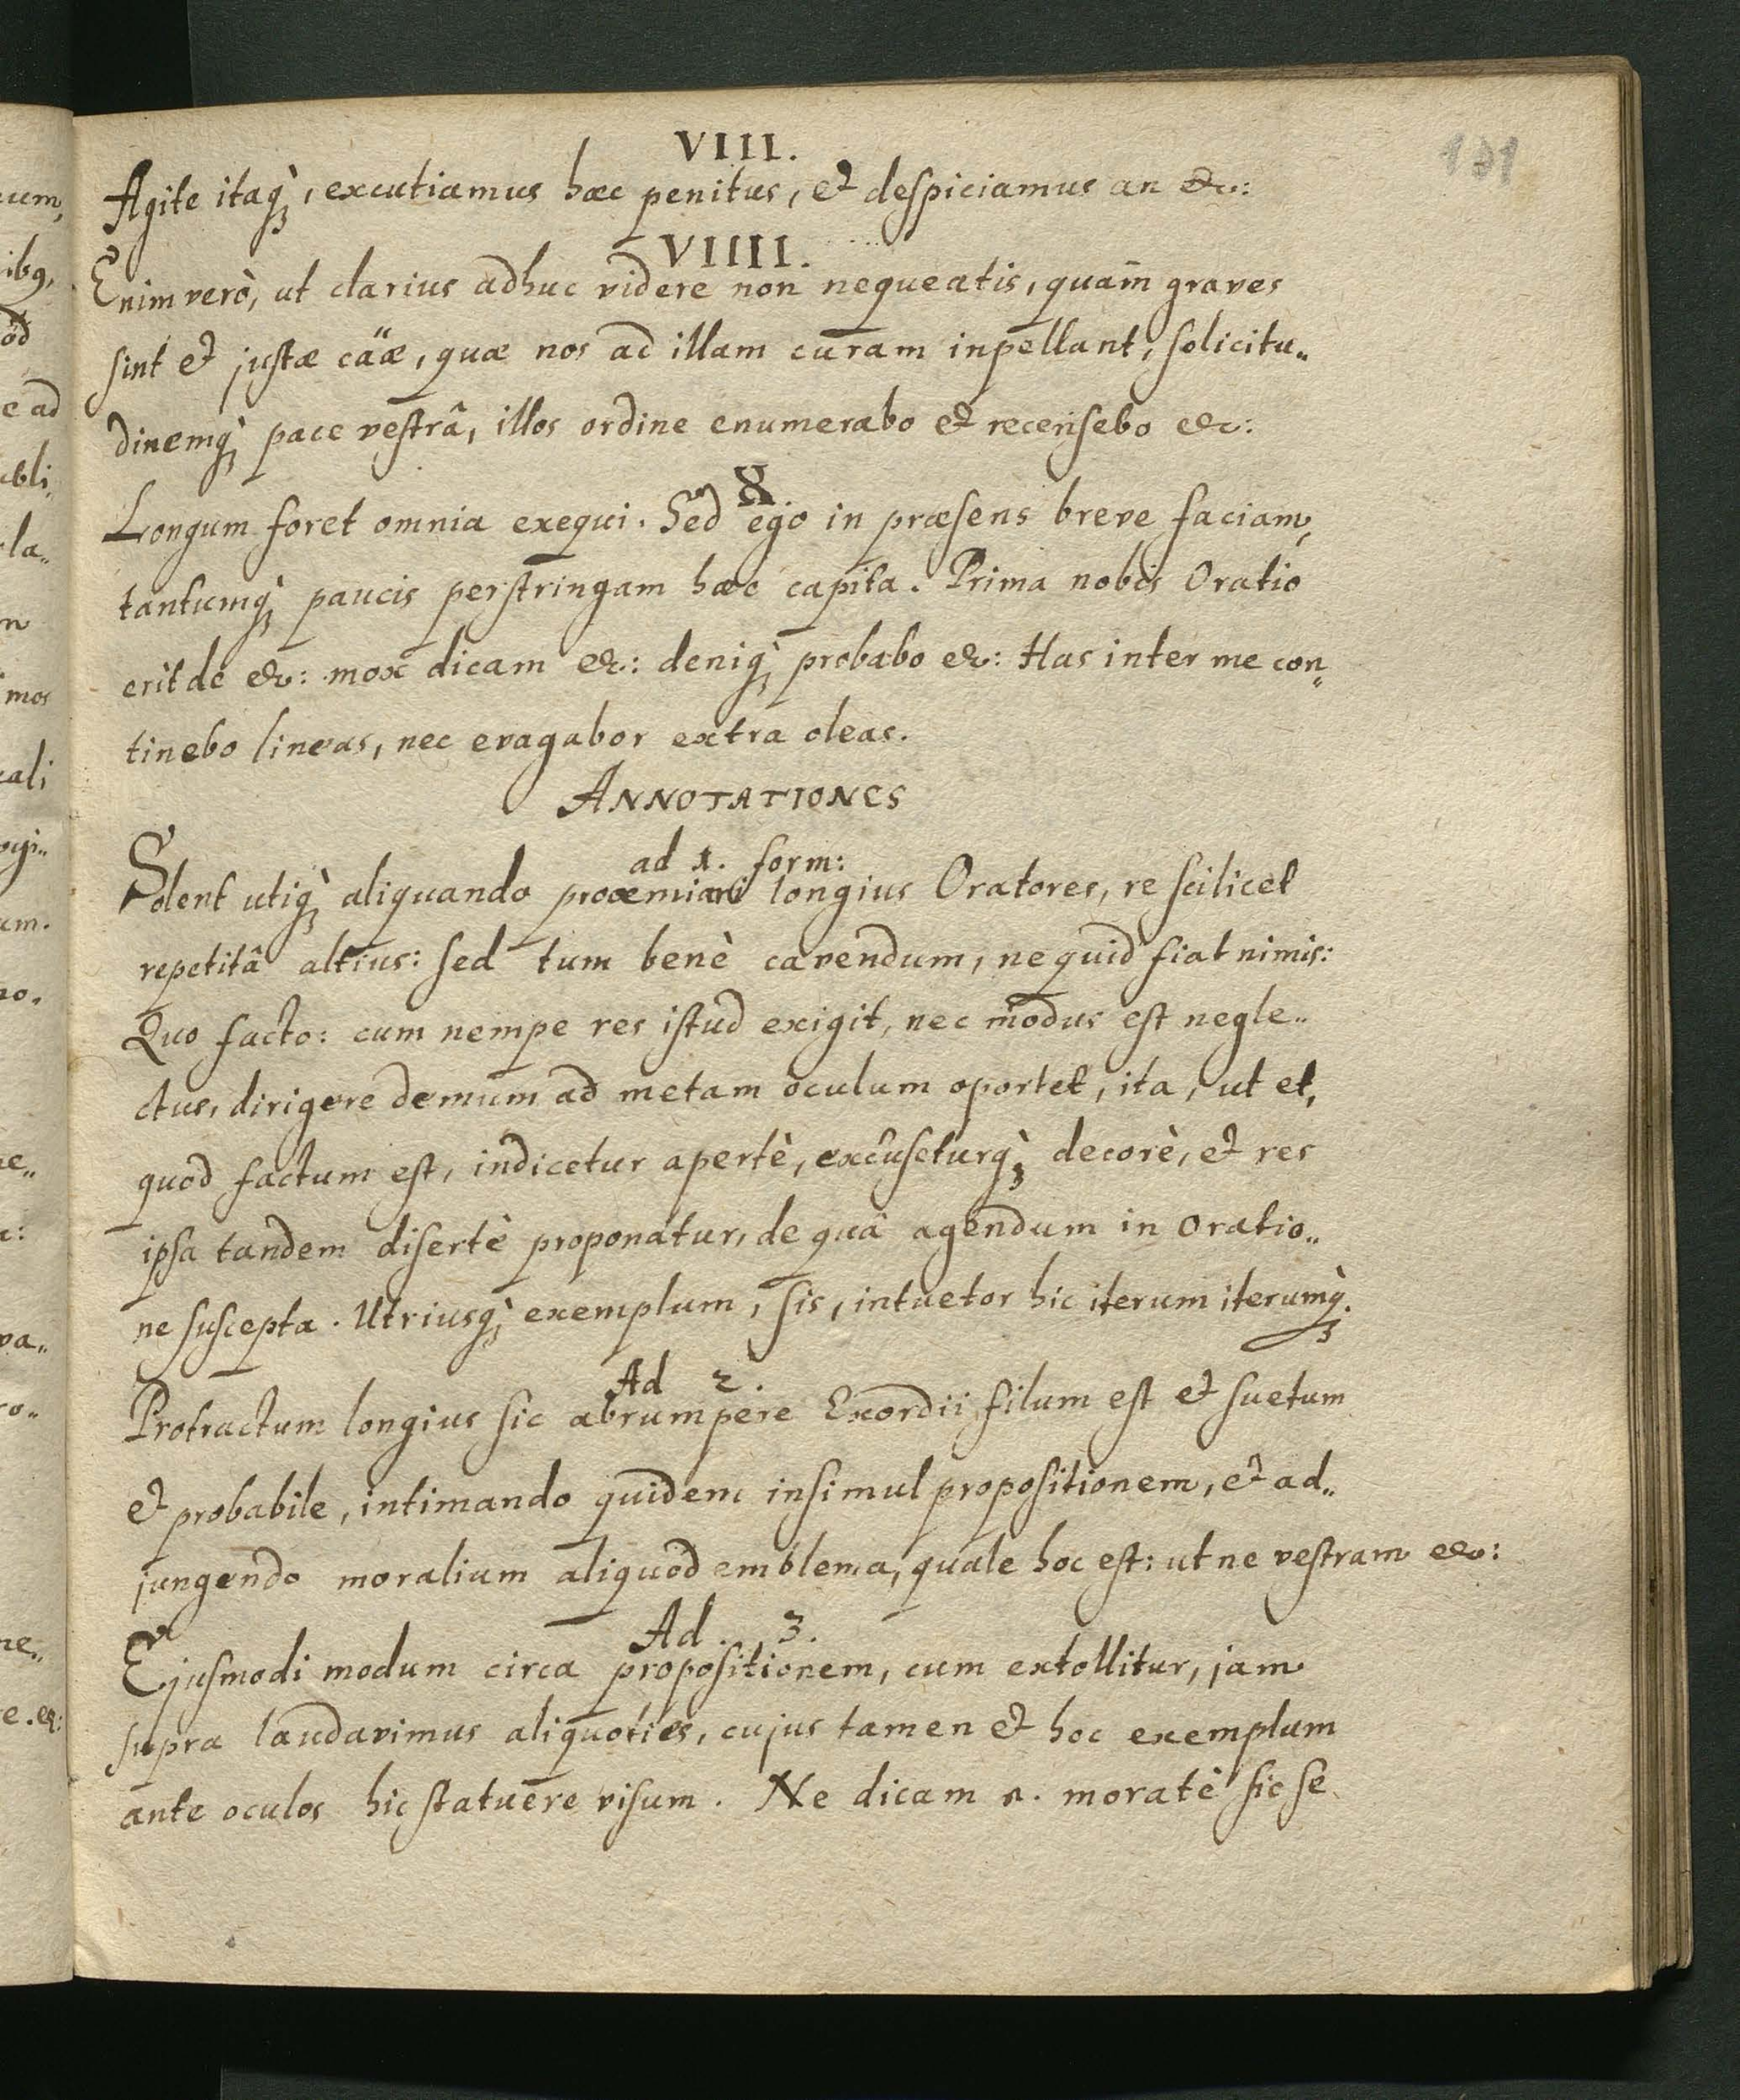 131
VIII.
Agite itaq̀ꝫ, excutiamus hæc penitus, et despiciamus an &c:
VIIII.
Enim verò, ut clarius adhuc videre non nequeatis, quam̃ graves
sint et justæ cäæ, quæ nos ad illam curam inpellant, solicitu„
dinemq̀ꝫ pace vestrâ, illos ordine enumerabo et recensebo &c:
X.
Longum foret omnia exequi. Sed ego in præsens breve faciam,
tantumq̀ꝫ paucis perstringam hæc capita. Prima nobis Oratio
erit de &c: mox dicam &c: deniq̀ꝫ probabo &c: Has inter me con„
tinebo lineas, nec evagabor extra oleas.
ANNOTATIONES
ad 1. form:
Solent utiq̀ꝫ aliquando proœmiari longius Oratores, re scilicet
repetitâ altius: sed tum benè cavendum, ne quid fiat nimis:
Quo facto: cum nempe res istud exigit, nec modus est negle„
ctus, dirigere demum ad metam oculum oportet, ita, ut et,
quod factum est, indicetur apertè, excuseturq̀ꝫ decorè, et res
ipsa tandem disertè proponatur, de quâ agendum in oratio„
ne suscepta. Utriusq̀ꝫ exemplum, sis, intuetor hic iterum iterumq̀ꝫ.
Ad 2.
Protractum longius sic abrumpere Exordii filum est et suetum
et probabile, intimando quidem insimul propositionem, et ad„
jungendo moralium aliquod emblema, quale hoc est: ut ne vestram &c:
Ad. 3.
Ejusmodi modum circa propositionem, cum extollitur, jam
supra laudavimus aliquoties, cujus tamen et hoc exemplum
ante oculos hic statuere visum. Ne dicam n. moratè sic se